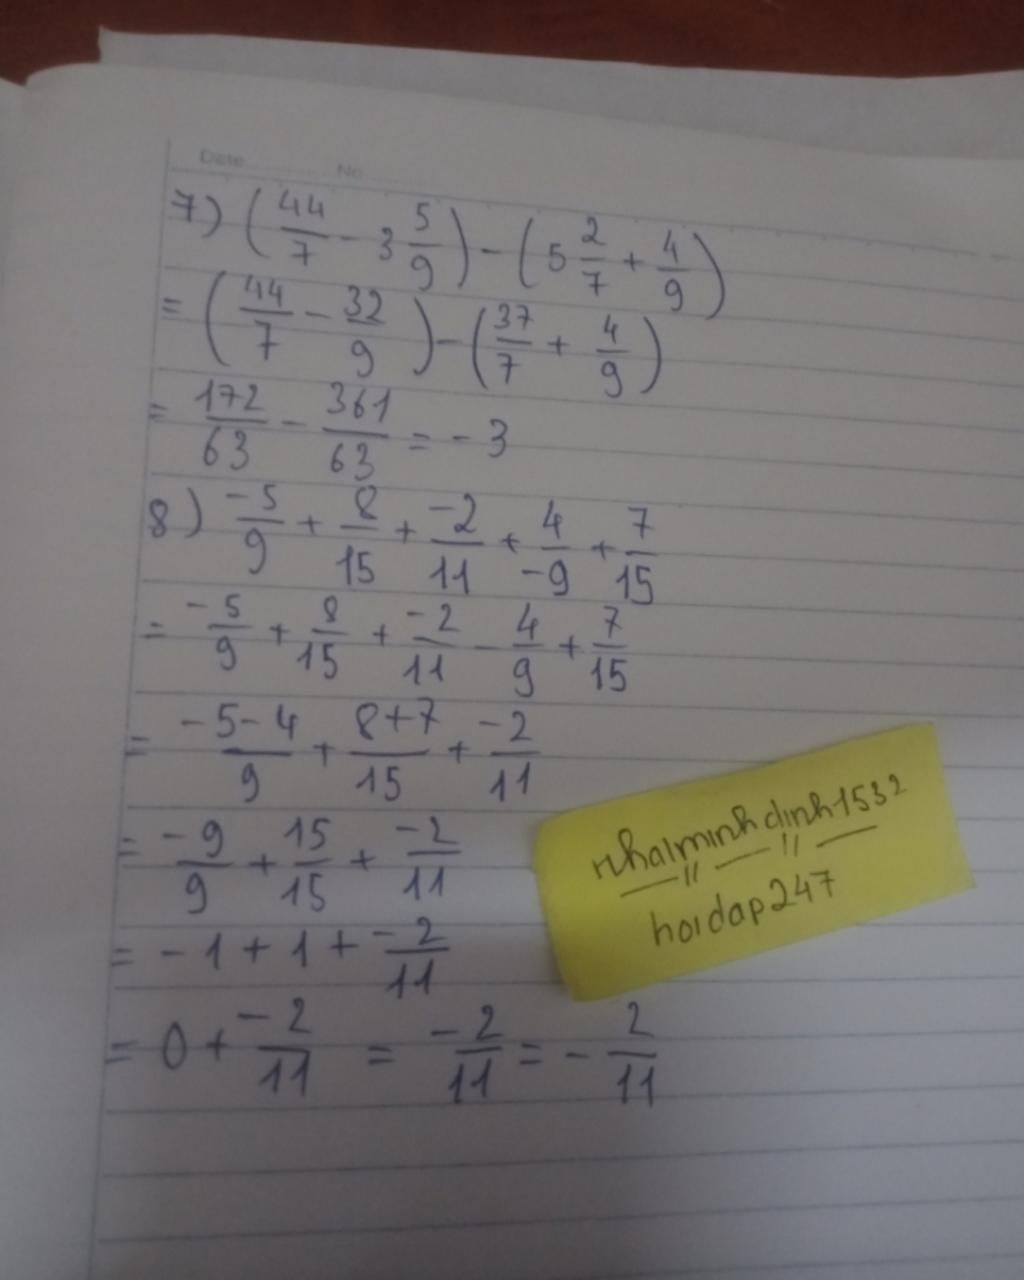 Date No
7) (44/7 - 3 5/9) - (5 2/7 + 4/9)
= (44/7 - 32/9) - (37/7 + 4/9)
= 172/63 - 361/63 = - 3
8) -5/9 + 8/15 + -2/11 + 4/-9 + 7/15
= -5/9 + 8/15 + -2/11 - 4/9 + 7/15
= -5-4/9 + 8+7/15 + -2/11
= -9/9 + 15/15 + -2/11
= -1 + 1 + -2/11
= 0 + -2/11 = -2/11 = - 2/11
nhalminhdinh1532
hoidap247